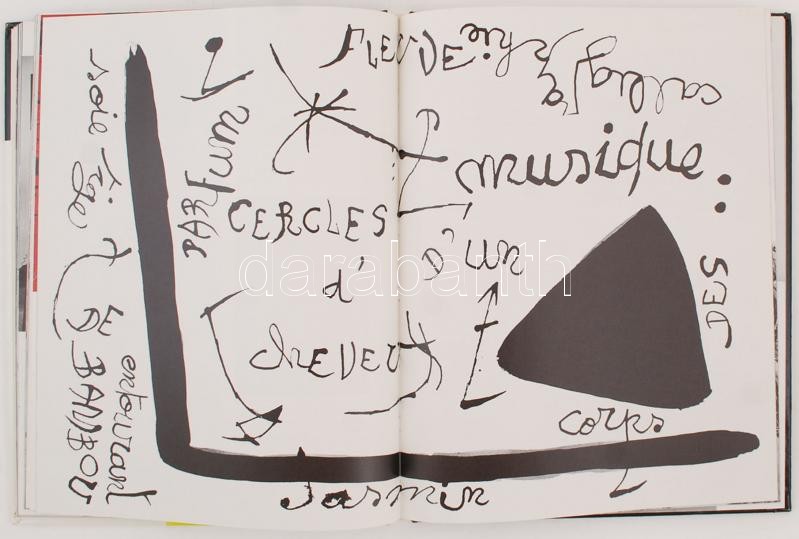 FLEUVE
calligraphie
musique:
PARFUM
CERCLES
D'UN
d'
DES
cheveux
soie tige
LE BAMBOU
entourant
corps
Jasmin
darabanth